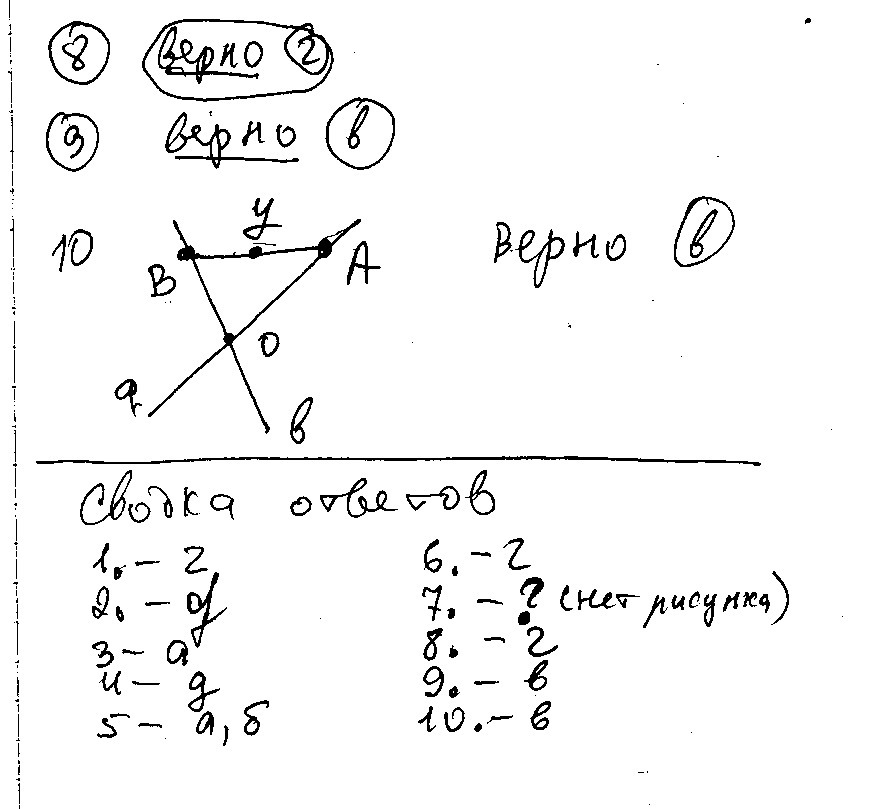 8 верно г
9 верно в
10 B y A O a в верно в
Сводка ответов
1. – г
2. – д
3 – а
4 – д
5 – а, б
6. – г
7. – ? (нет рисунка)
8. – г
9. – в
10. – в